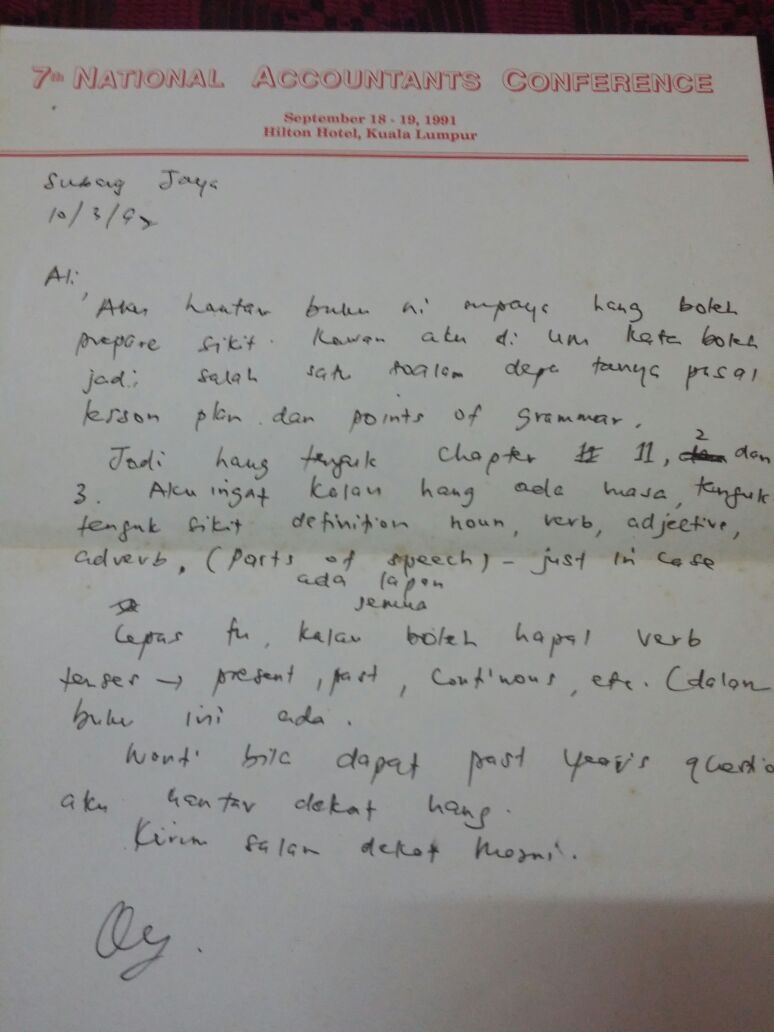 7th NATIONAL ACCOUNTANTS CONFERENCE
September 18 - 19, 1991
Hilton Hotel, Kuala Lumpur
Subang Jaya
10/3/9
Ali,
Aku hantar buku ni supaya hang boleh
prepare sikit. Kawan aku di UM kata boleh
jadi salah satu soalan depa tanya pasal
lesson plan dan points of grammar.
Jadi hang tengok chapter 11, 2 dan
3. Aku ingat kalau hang ada masa, tengok
tengok sikit definition noun, verb, adjective,
adverb, (parts of speech) – just in case
ada lapan
semua
Lepas tu, kalau boleh hapal verb
tenses → present, past, continous, etc. (dalam
buku ini ada.
Nanti bila dapat past year's questio
aku hantar dekat hang.
Kirim salam dekat